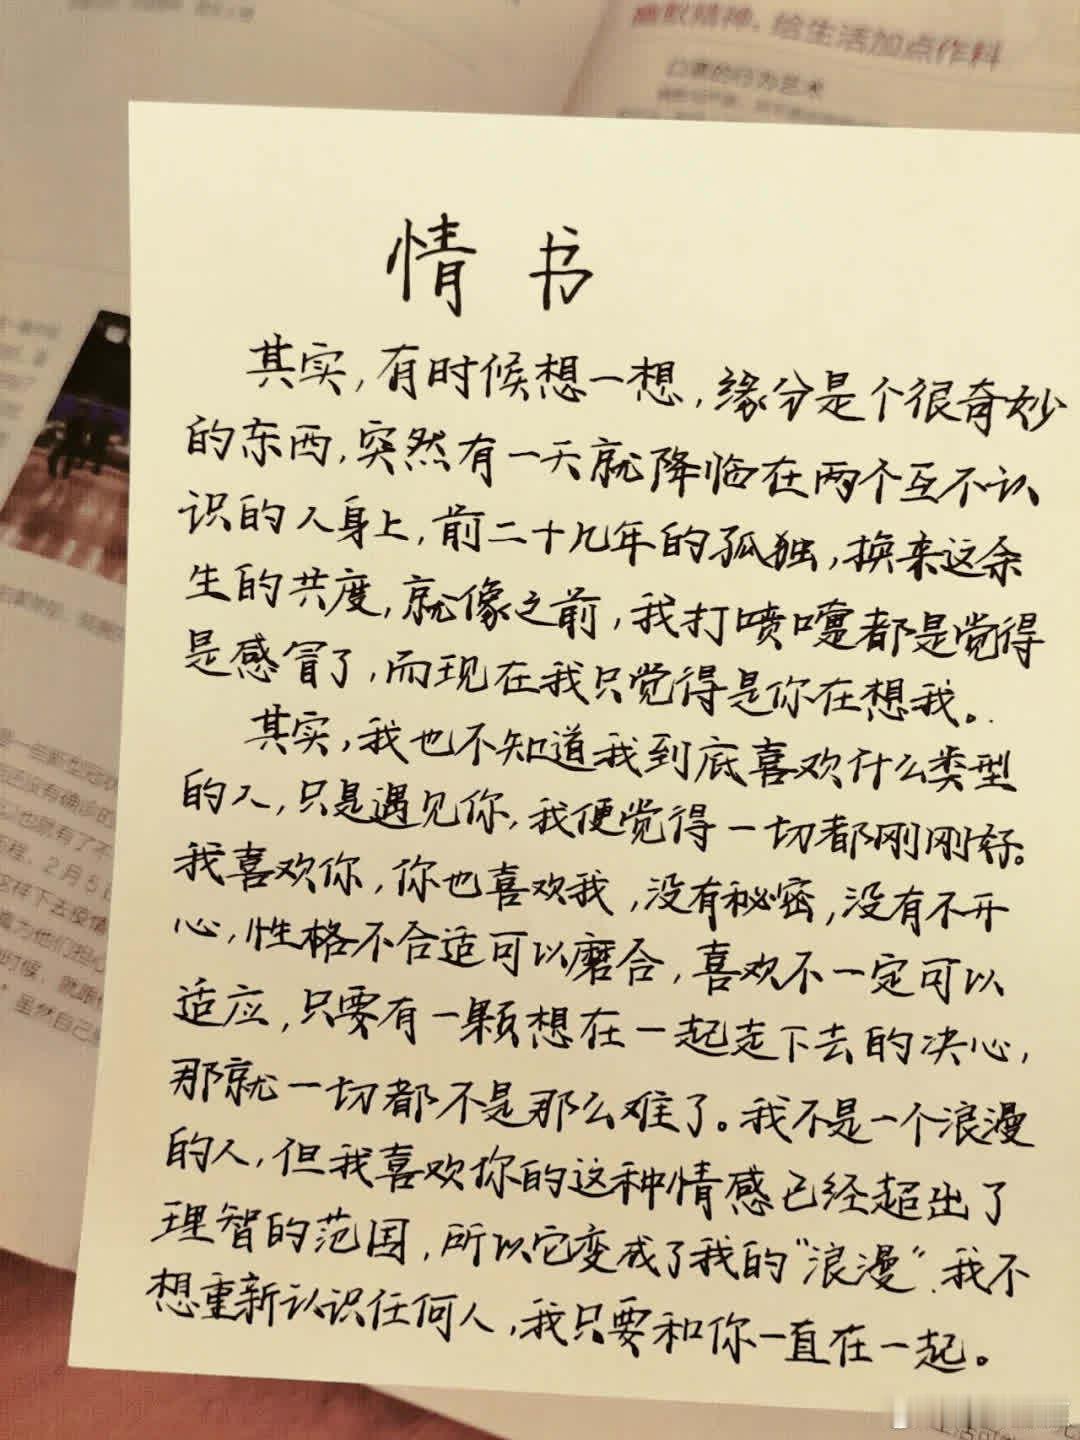 幽默精神，给生活加点作料
口罩的行为艺术
情书
其实，有时候想一想，缘分是个很奇妙
的东西，突然有一天就降临在两个互不认
识的人身上，前二十九年的孤独，换来这余
生的共度，就像之前，我打喷嚏都是觉得
是感冒了，而现在我只觉得是你在想我。
其实，我也不知道我到底喜欢什么类型
的人，只是遇见你，我便觉得一切都刚刚好。
我喜欢你，你也喜欢我，没有秘密，没有不开
心，性格不合适可以磨合，喜欢不一定可以
适应，只要有一颗想在一起走下去的决心，
那就一切都不是那么难了。我不是一个浪漫
的人，但我喜欢你的这种情感已经超出了
理智的范围，所以它变成了我的“浪漫”.我不
想重新认识任何人，我只要和你一直在一起。